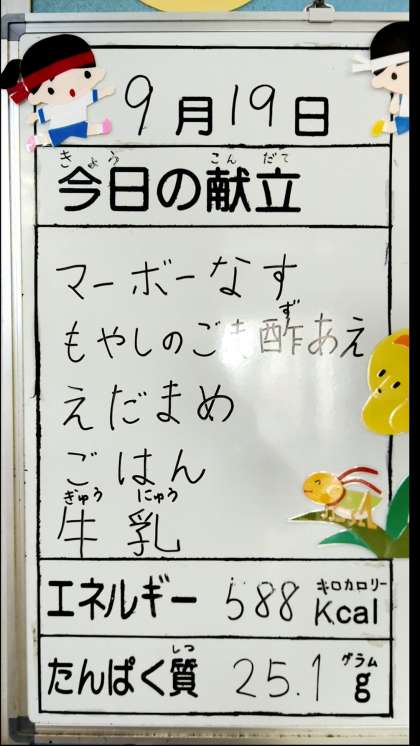 9月19日
きょう こん だて
今日の献立
マーボーなす
もやしのごま酢あえ
ず
えだまめ
ごはん
ぎゅう にゅう
牛乳
エネルギー 588 Kcal
キロカロリー
たんぱく質 25.1 g
しつ グラム